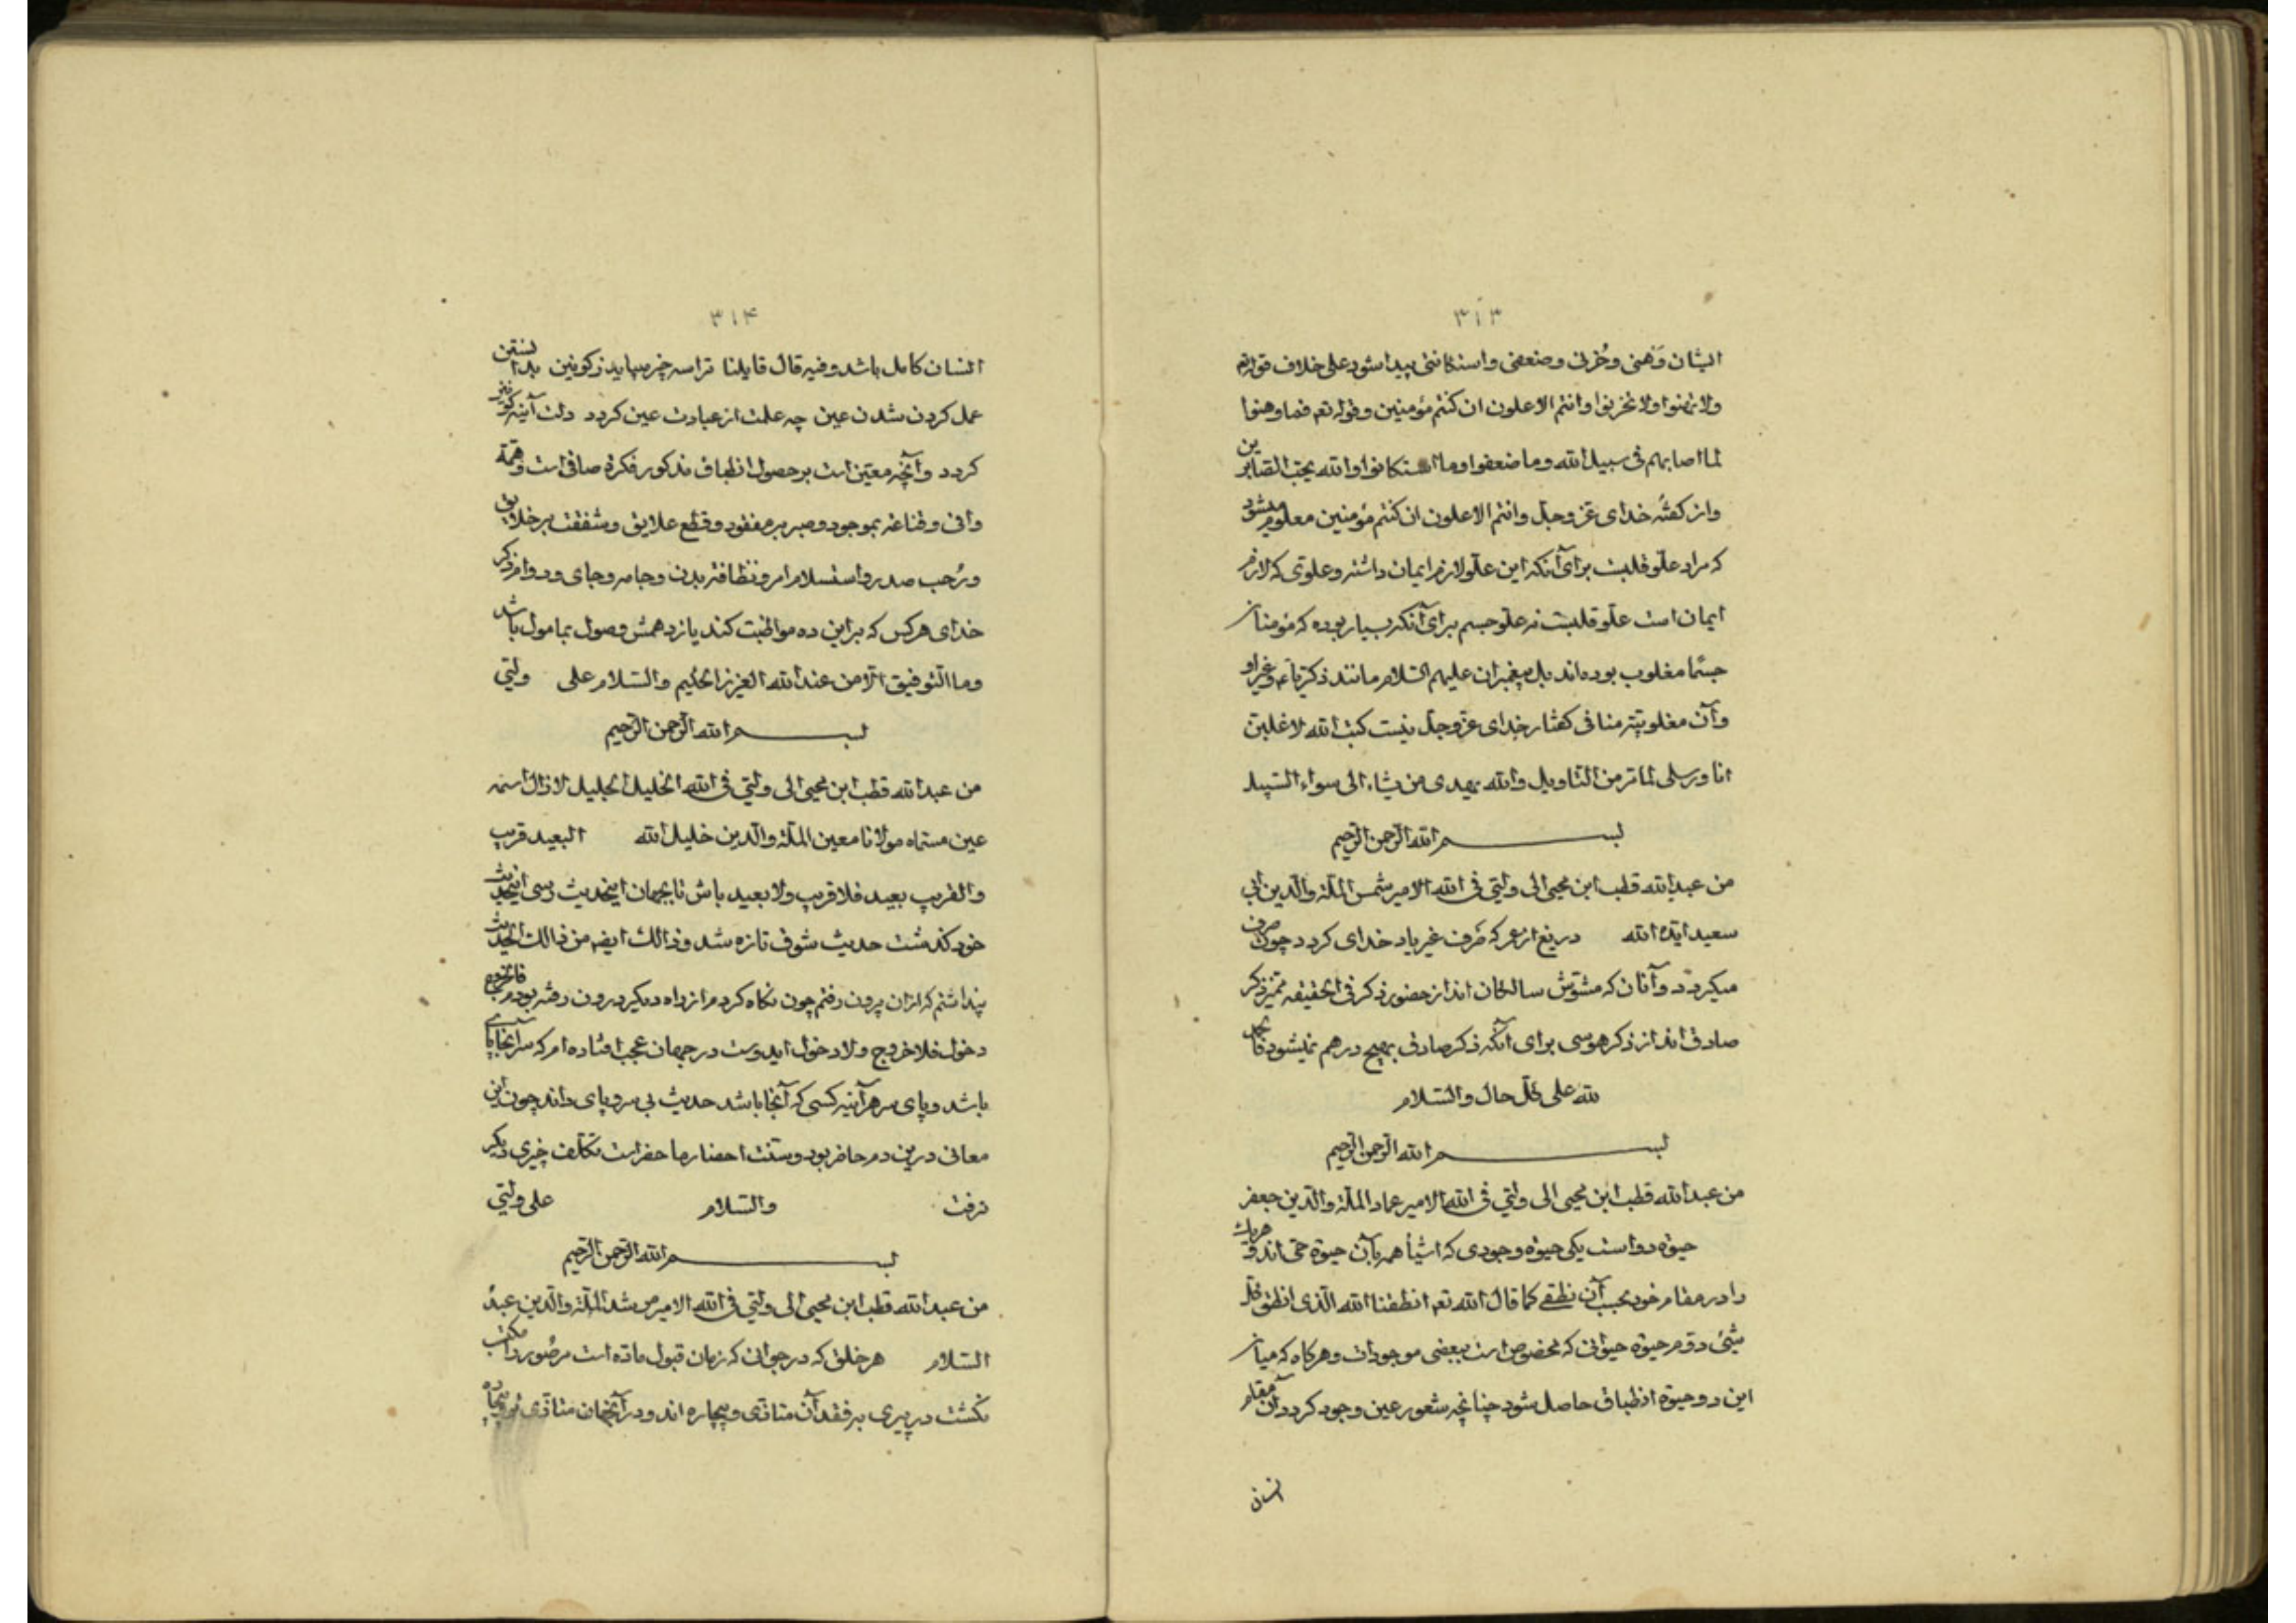 ۳۱۳
ایشان وَهنی و حُزنی و ضعفی و استکانتی پیدا شود علی خلاف قوله تعم
ولا تهنوا ولا تحزنوا وانتم الاعلون ان کنتم مؤمنین و قوله تعم فما وهنوا
لما اصابهم فی سبیل الله وما ضعفوا وما استکانوا والله یحب الصّابرین
و از کفتهٔ خدای عزّ وجلّ وانتم الاعلون ان کنتم مؤمنین معلوم میشود
که مراد علّو قلبیت برای آنکه این علّو لازم ایمان داشته و علوّی که لازم
ایمان است علّو قلبیت نه علّو جسم برای آنکه بسیار بوده که مؤمنان
جسمًا مغلوب بوده‌اند بل پیغمبران علیهم السّلام مانند ذکریّا عم و غیر او
و آن مغلوبیّتر منافی کفتار خدای عزّ وجلّ نیست کتب الله لاغلبنّ
انا ورسلی لما تر من التاویل والله یهدی من یشاء الی سواء السّبیل
بسم الله الرّحمن الرّحیم
من عبدالله قطب ابن محیی الی ولیّی فی الله الامیر شمس الملّة والدّین ابی
سعید ایّده الله دریغ از عمر که صَرف غیر یاد خدای کردد چون صرف
میکردد و آنان که مشوّش سالکان اند از حضور ذکر فی الحقیقه ممیّز ذکر
صادق اند از ذکر هوسی برای آنکه ذکر صادق بهیچ درهم نمیشود فالحمد
لله علی کلّ حال والسّلام
بسم الله الرّحمن الرّحیم
من عبدالله قطب ابن محیی الی ولیّی فی الله الامیر عماد الملّة والدّین جعفر
حیوة دو است یکی حیوة وجودی که اشیأ همه بآن حیوة حی اند و هر یک
را در مقام خود بحسب آن نطقی کما قال الله تعم انطقنا الله الّذی انطق کلّ
شیئ دوّم حیوة حیوانی که مخصوص است ببعضی موجودات و هرکاه که میان
این دو حیوة انطباق حاصل شود چنانچه شعور عین وجود کردد آن مقام
انسان
۳۱۴
انسان کامل باشد و فیه قال قایلنا ترا سه چیز میباید ز کونین بدانستن
عمل کردن شدن عین چه علمت از عبادت عین کردد دلت آینه کونین
کردد و آنچه معین است بر حصول انطباق مذکور فکرة صافی است و همّة
وافی و قناعة بموجود و صبر بر مفقود و قطع علایق و شفقت بر خلایق
و رُحب صدر و استسلام امر و نظافة بدن و جامه و جای و دوام ذکر
خدای هر کس که بر این ده مواظبت کند یازدهمش وصول بمامول باشد
وما التّوفیق الّا من عند الله العزیز الحکیم والسّلام علی ولیّی
بسم الله الرّحمن الرّحیم
من عبدالله قطب ابن محیی الی ولیّی فی الله الخلیل الجلیل لا زال اسمه
عین مسمّاه مولانا معین الملّة والدّین خلیل الله البعید قریب
والقریب بعید فلا قریب ولا بعید باش تا بجهان اینحدیث رسی اینحدیث
خود کذشت حدیث شوق تازه شد و ذالک ایضه من ذالک الحدیث
پنداشتم که ازان برون رفتم چون نکاه کردم از راه دیکر درون رفته بودم فالخروج
دخول فلا خروج ولا دخول ایدوست در جهان عجب افتاده‌ام که سر آنجا پای
باشد و پای سر هرآینه کسی که آنجا باشد حدیث بی سر و پای داند چون این
معانی درین دم حاضر بود و سنّت احضار ما حضر است تکلّف چیزی دیکر
نرفت والسّلام علی ولیّی
بسم الله الرّحمن الرّحیم
من عبدالله قطب ابن محیی الی ولیّی فی الله الامیر مرشد الملّة والدّین عبد
السّلام هر خلق که در جوانی که زمان قبول مادّه است مر صُور را مکتسب
نکشت در پیری بر فقد آن متاذّی و بیچاره اند و در آنجهان متاذّی